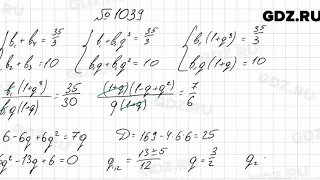 GDZ.RU
№ 1039
{ b₁ + b₄ = 35/3 { b₁ + b₁q³ = 35/3 { b₁(1+q³) = 35/3
{ b₂ + b₃ = 10 { b₁q + b₁q² = 10 { b₁q(1+q) = 10
b₁(1+q³)/b₁q(1+q) = 35/30 (1+q)(1-q+q²)/q(1+q) = 7/6
6-6q+6q² = 7q D = 169-4·6·6 = 25
6q²-13q+6=0 q₁,₂ = 13±5/12 q = 3/2 q₂